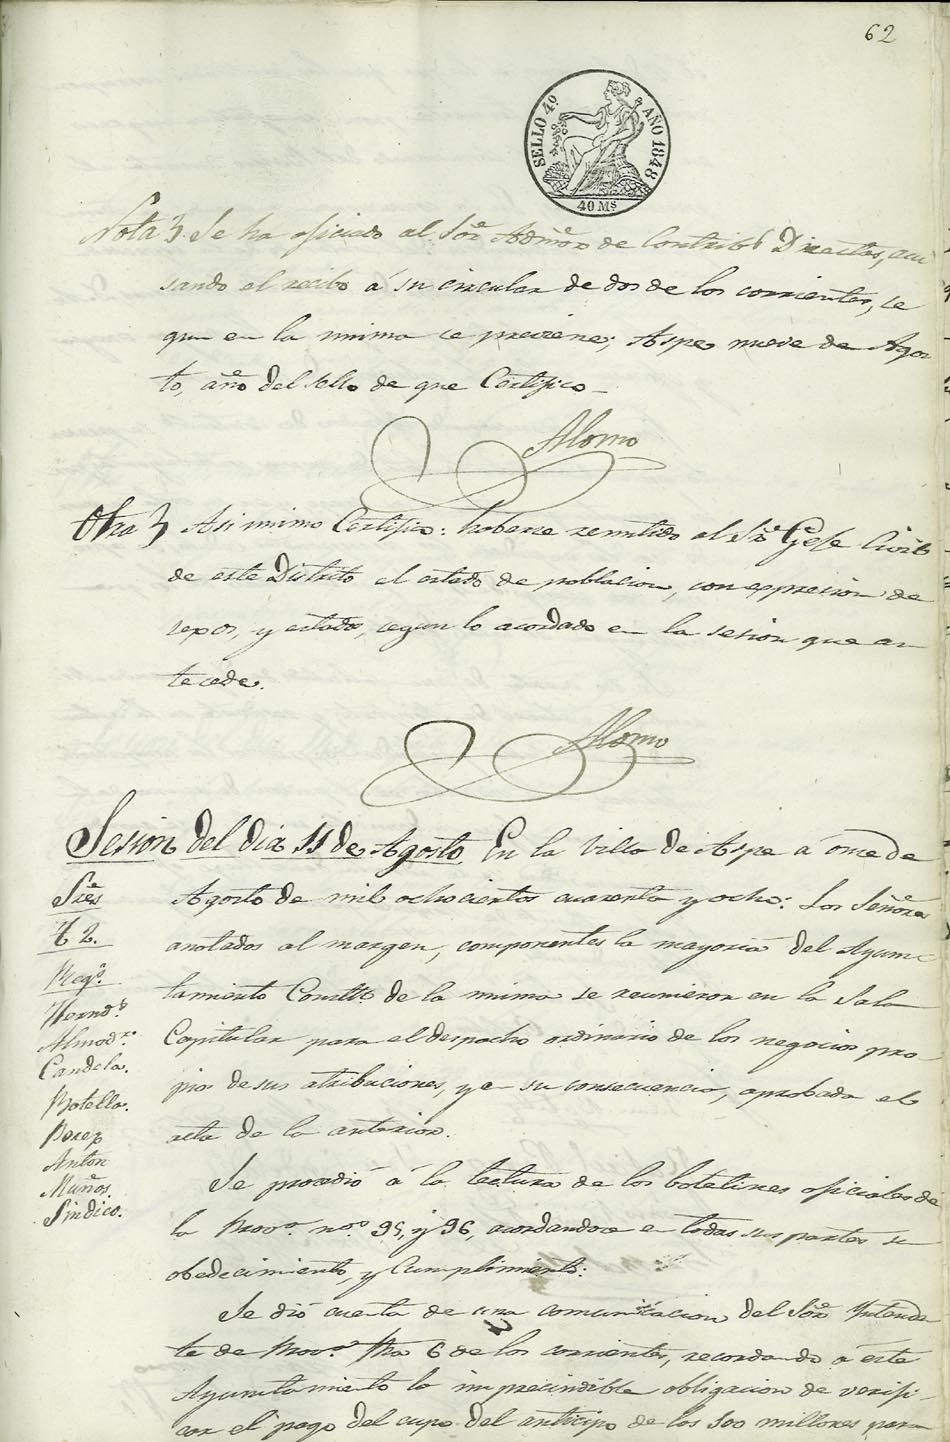 62
SELLO 4º AÑO 1848
40 Ms
Nota } Se ha oficiado al Sor. Admor de Contribs. Directas, acu
sando el recibo á su circular de dos de los corrientes, se
gun en la misma se previene; Aspe nueve de Agos
to, año del sello de que Certifico
Alonso
Otra } Asimismo Certifico: haberse remitido al Sr. Gefe Civil
de este Distrito el estado de poblacion, con expresion de
sexos, y estados, segun lo acordado en la sesion que an
tecede.
Alonso
Sesion del dia 11 de Agosto. En la Villa de Aspe á once de
Agosto de mil ochocientos cuarenta y ocho: Los Señores
anotados al margen, componentes la mayoria del Ayun
tamiento Constl. de la misma se reunieron en la Sala
Capitular para el despacho ordinario de los negocios pro
pios de sus atribuciones, y en su consecuencia, aprobada el
acta de la anterior.
Sres
T. 2.
Regs.
Hernds.
Almodr.
Candela.
Botella.
Perez
Anton
Muños.
Sindico.
Se procedió á la lectura de los boletines oficiales de
la Prova. nos. 95, y 96, acordandose en todas sus partes su
obedecimiento, y Cumplimiento:
Se dió cuenta de una comunicacion del Sor. Intenden
te de Prova. fha 6 de los corrientes, recordando á este
Ayuntamiento la imprecindible obligacion de verifi
car el pago del cupo del anticipo de los 100 millones para